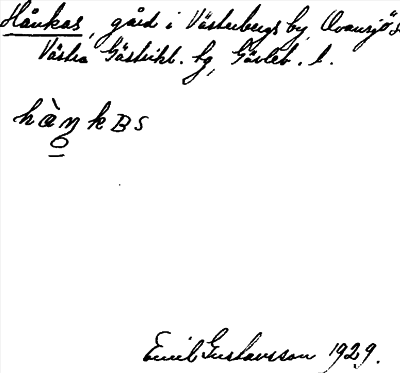 Hånkas, gård i Västerbergs by, Ovansjö s
Västra Gästrikl. tg, Gävleb. l.
hàŋkBs
Emil Gustavsson 1929.